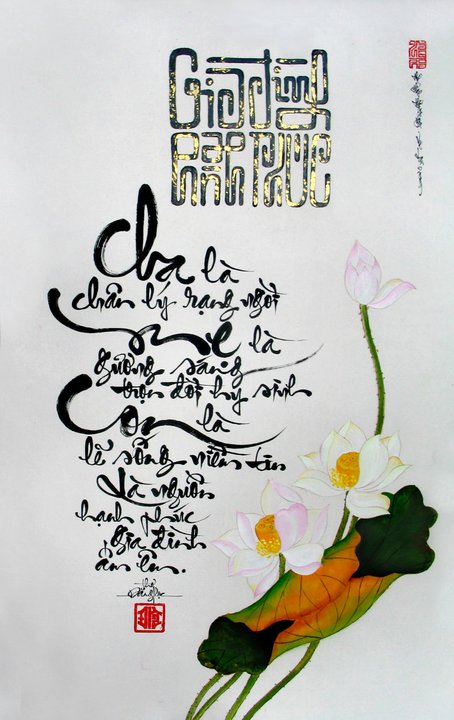 Gia đình
Hạnh PHÚC
Cha là
chân lý rạng ngời
Mẹ là
gương sáng
trọn đời hy sinh
Con là
lẽ sống niềm tin
Là nguồn
hạnh phúc
gia đình
ấm êm.
Thơ